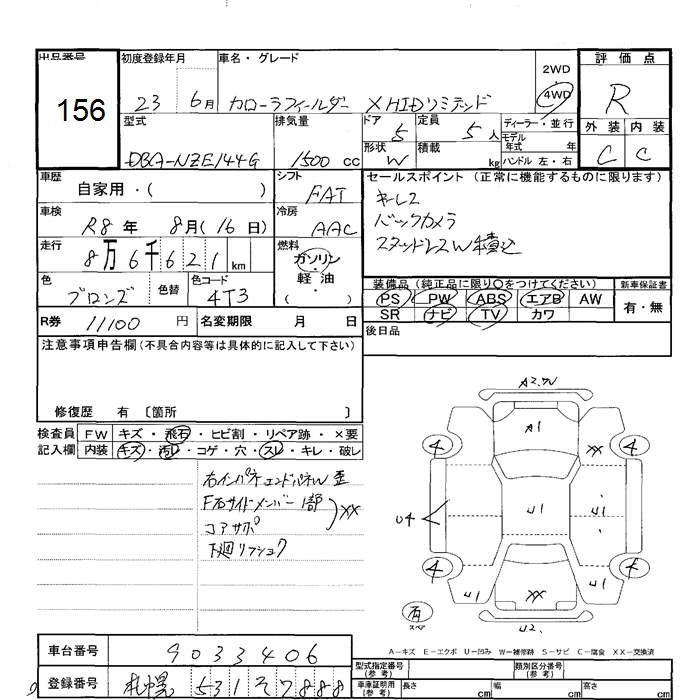 出品番号 初度登録年月 車名・グレード 2WD 評価点
156 23 6月 カローラフィールダー XHIDリミテッド 4WD R
型式 排気量 ドア 定員 ディーラー・並行 外装 内装
DBA-NZE144G 1500 cc 5 5人 モデル年式 年 C C
形状 W 積載 kg ハンドル 左・右
車歴 シフト セールスポイント(正常に機能するものに限ります)
自家用・( ) FAT キーレス
車検 冷房 バックカメラ
R8年 8月(16日) AAC スタッドレスW積込
走行 燃料
8万6千621km ガソリン・軽油
色 色替 色コード ( )
ブロンズ 4T3
装備品(純正品に限り○をつけてください) 新車保証書
PS PW ABS エアB AW 有・無
SR ナビ TV カワ
R券 11100 円 名変期限 月 日 後日品
注意事項申告欄(不具合内容等は具体的に記入して下さい)
修復歴 有 〔箇所 〕
検査員 FW キズ・飛石・ヒビ割・リペア跡・×要
記入欄 内装 キズ・汚レ・コゲ・穴・スレ・キレ・破レ
右インパネエンドパネW歪
F右サイドメンバー1部 XX
コアサポ
下廻リフシュク
A2.W
A1
4 XX 4
U4 U1 U1
4 4
U1 XX U1
有 スペア U2.
A-キズ E-エクボ U-凹み W-補修跡 S-サビ C-腐食 XX-交換済
車台番号 9033406
型式指定番号(参考) 類別区分番号(参考)
登録番号 札幌 531 そ 7888
車庫証明用(参考) 長さ cm 幅 cm 高さ cm